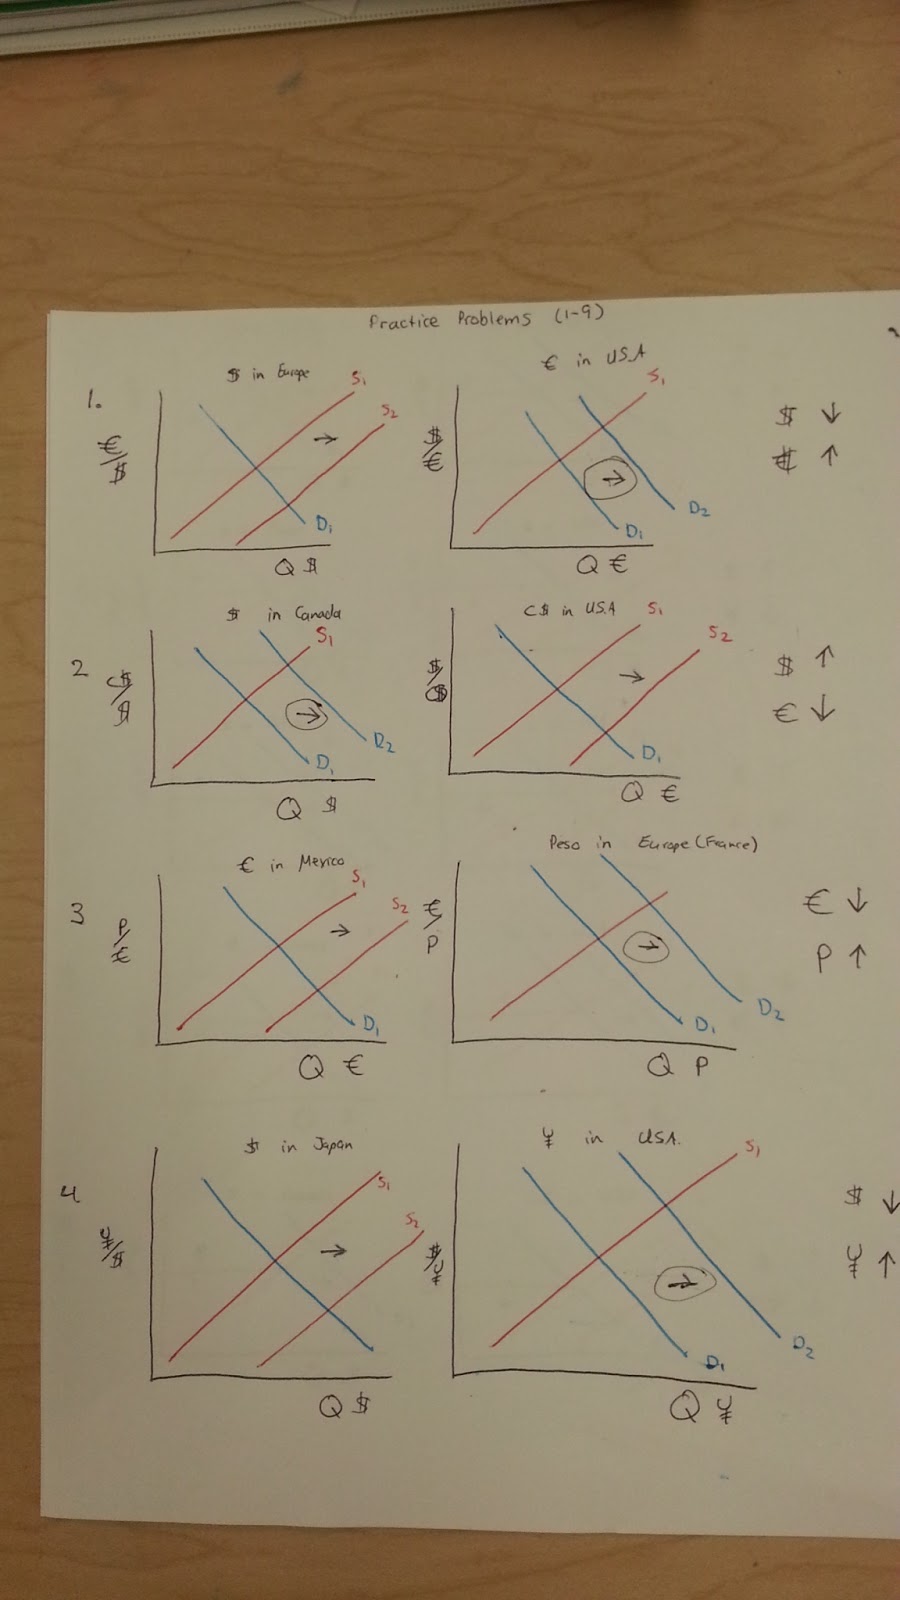 Practice Problems (1-9)
1.
$ in Europe
€/$
S₁
S₂
D₁
Q $
€ in USA
$/€
S₁
D₁
D₂
Q €
$ ↓
€ ↑
2
$ in Canada
C$/$
S₁
D₁
D₂
Q $
C$ in USA
$/C$
S₁
S₂
D₁
Q €
$ ↑
€ ↓
3
€ in Mexico
P/€
S₁
S₂
D₁
Q €
Peso in Europe (France)
€/P
D₁
D₂
Q P
€ ↓
P ↑
4
$ in Japan
¥/$
S₁
S₂
Q $
¥ in USA.
$/¥
S₁
D₁
D₂
Q ¥
$ ↓
¥ ↑